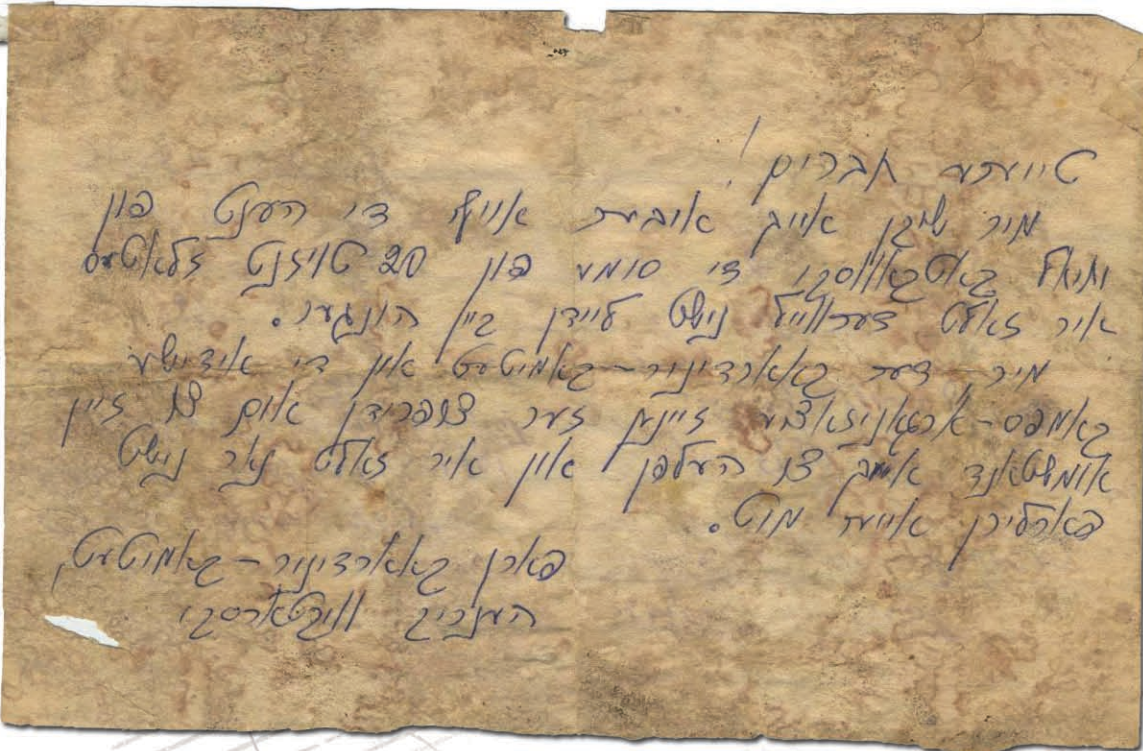 טייערע חברים!
מיר שיקן אייך אובער אויף די הענט פון
די סומע פון 20 טויזנט זלאטעס
איר זאלט דערווייל נישט ליידן ביי הונגער.
מיר, דער קאארדיניר-קאמיטעט און די אידישע
קאמפס-ארגאניזאציע זיינען זער צופרידן אום צו זיין
אומשטאנד אייך צו העלפן און איר זאלט נאר נישט
פארלירן אייער מוט.
פארן קאארדיניר-קאמיטעט
העבריק וויקטארסקי